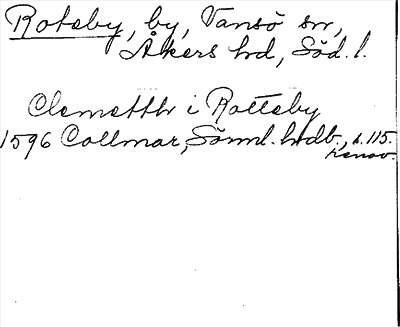 Rotsby, by, Vansö sn,
Åkers hd, Söd. l.
Clemetth i Rotteby
1596 Collmar, Sörml. hdb., s. 115.
renov.